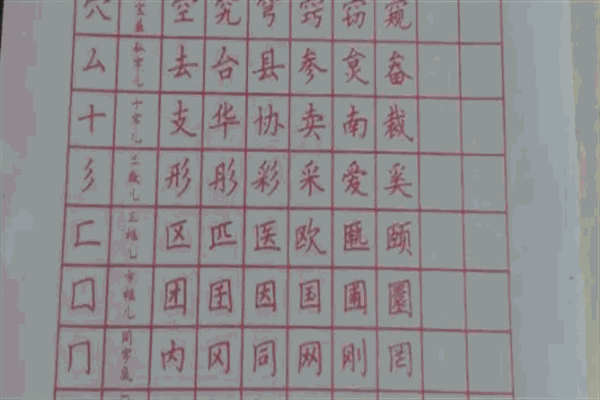 穴 宝盖 空 究 穹 窍 窃 窥
厶 私字儿 去 台 县 参 畚
十 十字儿 支 华 协 卖 南 裁
彡 三撇儿 形 彤 彩 采 爱 奚
匚 三框儿 区 匹 医 欧 匦 颐
囗 方框儿 团 囯 因 国 圃 圜
冂 同字匡 内 冈 同 网 刚 罔